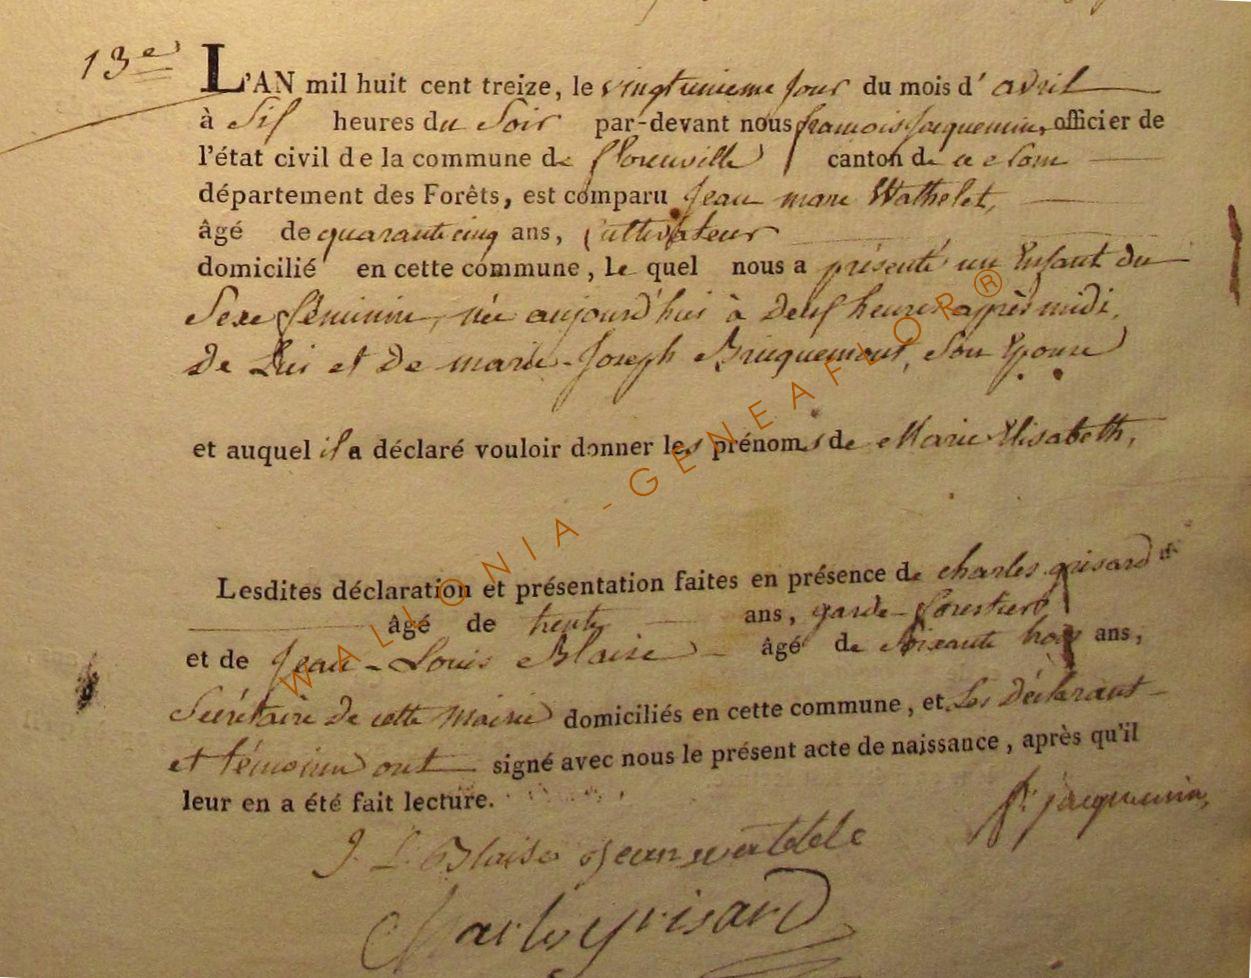 13e L'AN mil huit cent treize, le vingtunieme jour du mois d'avril
à Six heures du Soir par-devant nous francois Jacquemin, officier de
l'état civil de la commune de florenville canton de
département des Forêts, est comparu Jean Wathelet,
âgé de quarante cinq ans, Cultivateur
domicilié en cette commune, le quel nous a présenté un Enfant du
Sexe féminin, née aujourd'hui à deux heures après midi,
de Lui et de marie-Joseph Bricquemont, Son Epouse
et auquel il a déclaré vouloir donner les prénoms de Marie Elisabeth,
Lesdites déclaration et présentation faites en présence de charles grisard
âgé de trente ans, garde-forestier
et de Jean-Louis Blaise âgé de Soixante trois ans,
Secrétaire de cette Mairie domiciliés en cette commune, et Les déclarant
et témoins ont signé avec nous le présent acte de naissance, après qu'il
leur en a été fait lecture.
fs jacquemin,
J. L. Blaise Jean
Charles grisard
WALLONIA-GENEAFLOR®